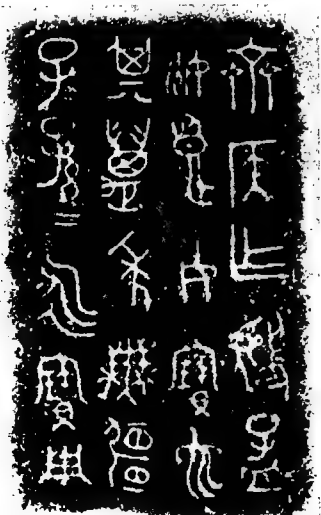 齊侯乍虢孟
姬良女寶它
其萬年無畺
子孫=永寶用